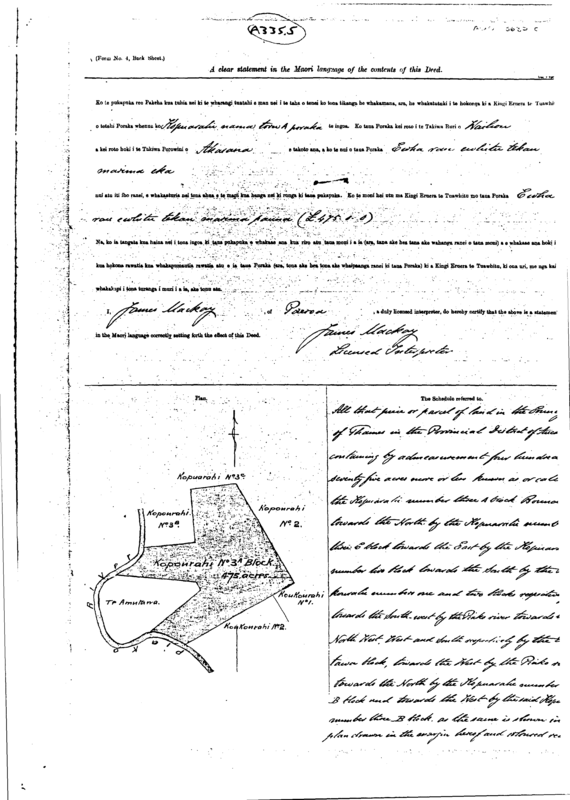 A335.5
(Form No. 4, Back Sheet.)
A clear statement in the Maori language of the contents of this Deed.
Ko te pukapuka reo Pakeha kua tuhia nei ki te wharangi tuatahi o mua nei i te take o tenei ko tona tikanga he whakamana, ara, he whakatutuki i te hokonga ki a Kingi Ernera te Tuawhitu
o tetahi Poraka whenua ko Kopuarahi nama toru A poraka te ingoa. Ko taua Poraka kei roto i te Takiwa Ruri o
a kei roto hoki i te Takiwa Porowini o Akarana e takoto ana, a ko te nui o taua Poraka E wha rau e whitu tekau
marima eka
nui atu iti iho ranei, e whakaaturia nei tona ahua e te mapi kua hanga nei ki runga ki tenei pukapuka. Ko te moni kei utu ma Kingi Ernera te Tuawhitu mo taua Poraka E wha
rau e whitu tekau marima pauna (£475.0.0)
Na, ko ia tangata kua haina nei i tona ingoa ki tenei pukapuka e whakaae ana kua riro atu taua moni i a ia (ara, tona ake hea tana ake wahanga ranei o taua moni) a e whakaae ana hoki i
kua hokona rawatia kua whakapumautia rawatia atu e ia taua Poraka (ara, tona ake hea tona ake whaipaanga ranei ki taua Poraka) ki a Kingi Ernera te Tuawhitu, ki ona uri, me nga kai
whakakapi i tona turanga i muri i a ia, ake tonu atu.
I, James Mackay, of Paeroa, a duly licensed interpreter, do hereby certify that the above is a statement
in the Maori language correctly setting forth the effect of this Deed.
James Mackay
Licensed Interpreter
Plan.
Kopuarahi No 3
Kopourahi
No 3
Kopourahi
No 2.
Kopourahi No 3A Block
475 acres
KouKourahi
No 1.
Te Amutawa.
KouKourahi No 2.
River
Piako
The Schedule referred to.
All that piece or parcel of land in the
of Thames in the Provincial District of
containing by admeasurement four hundred
seventy five acres more or less known as or
the Kopuarahi number three A block
towards the North by the Kopuarahi number
three C block towards the East by the
number two block towards the South by the
numbers one and two blocks
towards the South west by the Piako river towards
North West, West and South respectively by the
block, towards the West by the Piako
towards the North by the Kopuarahi number
B block and towards the West by the said
number three B block. as the same is shown in
plan drawn in the margin hereof and coloured